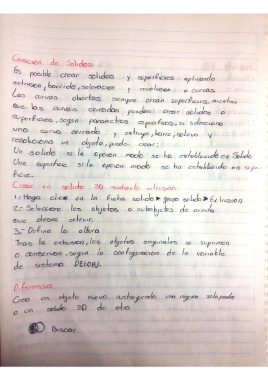 Creacion de Solidos
Es posible crear solidos y superficies aplicando
extrusion, barrido, solevacion y revolucion a curvas.
Las curvas abiertas siempre crean superficies, mientras
que las curvas cerradas pueden crear solidos o
superficies, segun parametros especificos, si selecciona
una curva cerrada y extruye, barre, soleva y
revoluciona un objeto, puede crear:
Un solido si la opcion modo se ha establecido en Solido
Una superficie si la opcion modo se ha establecido en super
ficie.
Crear un solido 3D mediante extrusion
1.- Haga click en la ficha solido > grupo solido > Extrusion
2.- Seleccione los objetos o subobjetos de arista
que desee extruir.
3.- Defina la altura
Tras la extrusion, los objetos originales se suprimen
o conservan, segun la configuracion de la variable
de sistema DELOBJ.
Diferencia
Crea un objeto nuevo sustrayendo una region solapada
o un solido 3D de otro
Buscar